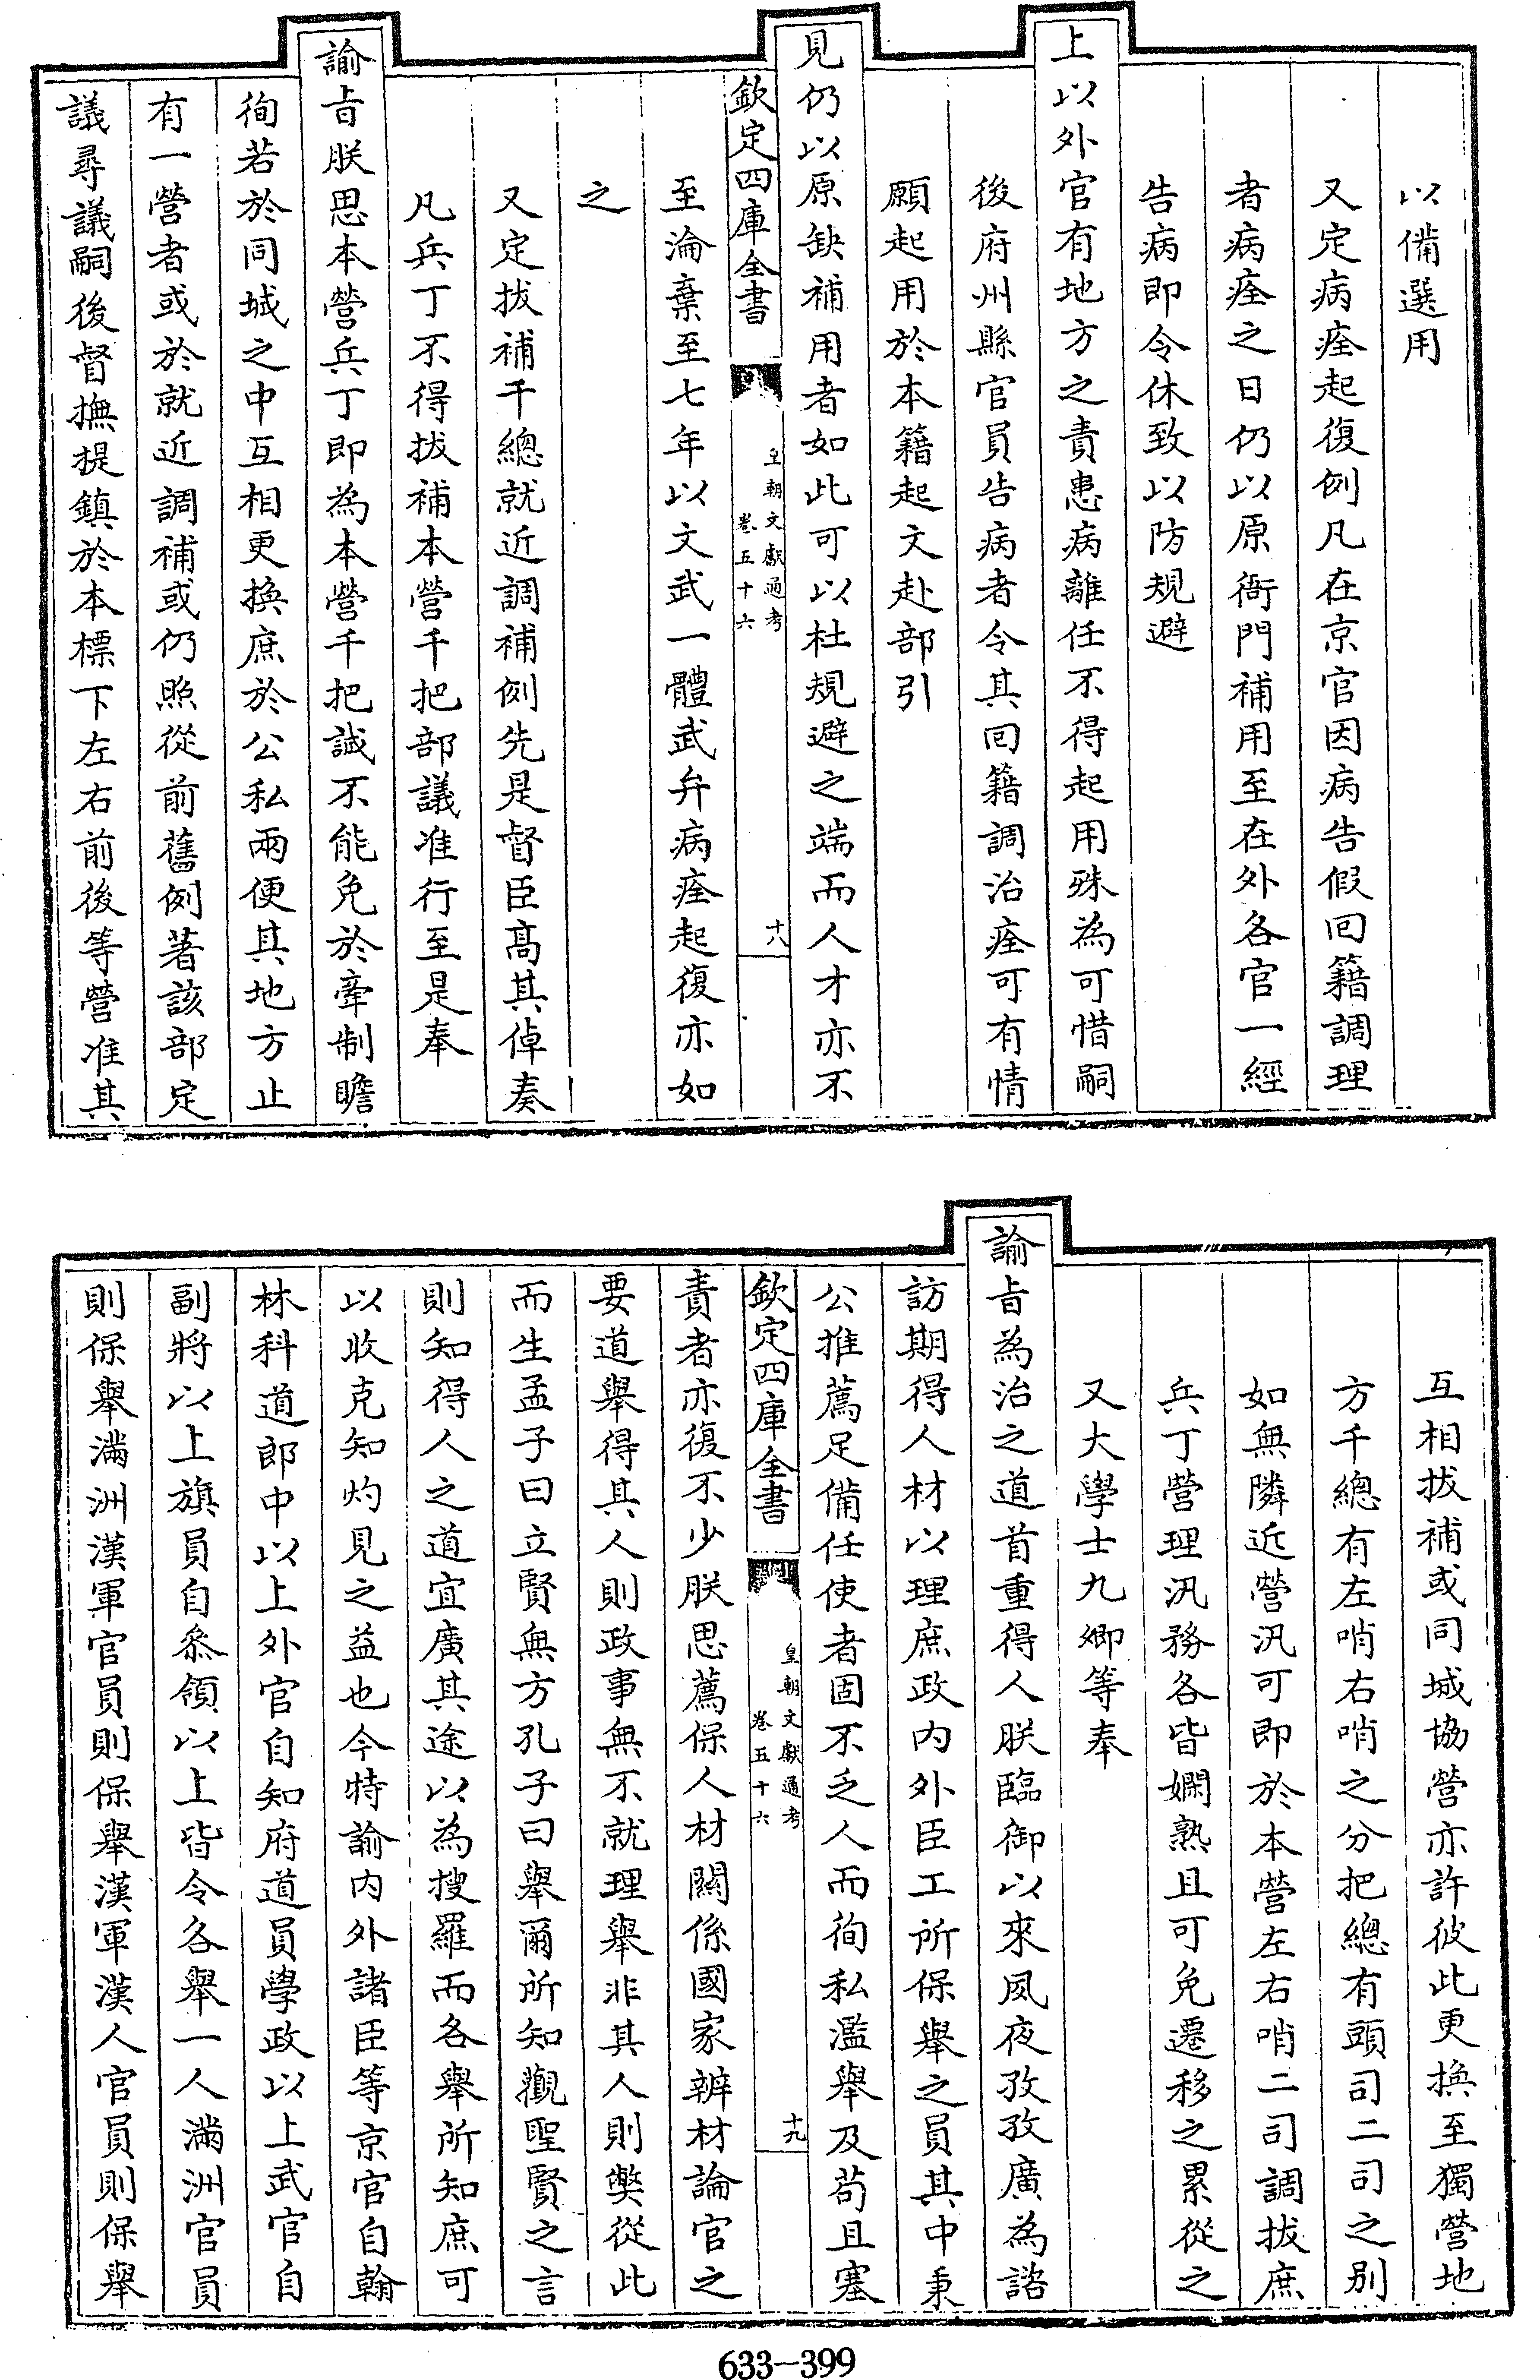 以備選用
又定病痊起復例凡在京官因病告假回籍調理
者病痊之日仍以原衙門補用至在外各官一經
告病即令休致以防規避
上以外官有地方之責患病離任不得起用殊為可惜嗣
後府州縣官員告病者令其回籍調治痊可有情
願起用於本籍起文赴部引
見仍以原缺補用者如此可以杜規避之端而人才亦不
欽定四庫全書
皇朝文獻通考
卷五十六
十八
至淪棄至七年以文武一體武弁病痊起復亦如
之
又定拔補千總就近調補例先是督臣髙其倬奏
凡兵丁不得拔補本營千把部議准行至是奉
諭㫖朕思本營兵丁即為本營千把誠不能免於牽制瞻
徇若於同城之中互相更換庶於公私兩便其地方止
有一營者或於就近調補或仍照從前舊例著該部定
議尋議嗣後督撫提鎮於本標下左右前後等營准其
互相拔補或同城協營亦許彼此更換至獨營地
方千總有左哨右哨之分把總有頭司二司之别
如無隣近營汛可即於本營左右哨二司調拔庶
兵丁營理汛務各皆嫻熟且可免遷移之累從之
又大學士九卿等奉
諭㫖為治之道首重得人朕臨御以來夙夜孜孜廣為諮
訪期得人材以理庶政内外臣工所保舉之員其中秉
公推薦足備任使者固不乏人而徇私濫舉及苟且塞
欽定四庫全書
皇朝文獻通考
卷五十六
十九
責者亦復不少朕思薦保人材關係國家辨材論官之
要道舉得其人則政事無不就理舉非其人則弊從此
而生孟子曰立賢無方孔子曰舉爾所知觀聖賢之言
則知得人之道宜廣其途以為搜羅而各舉所知庶可
以收克知灼見之益也今特諭内外諸臣等京官自翰
林科道郎中以上外官自知府道員學政以上武官自
副將以上旗員自叅領以上皆令各舉一人滿洲官員
則保舉滿洲漢軍官員則保舉漢軍漢人官員則保舉
633-399